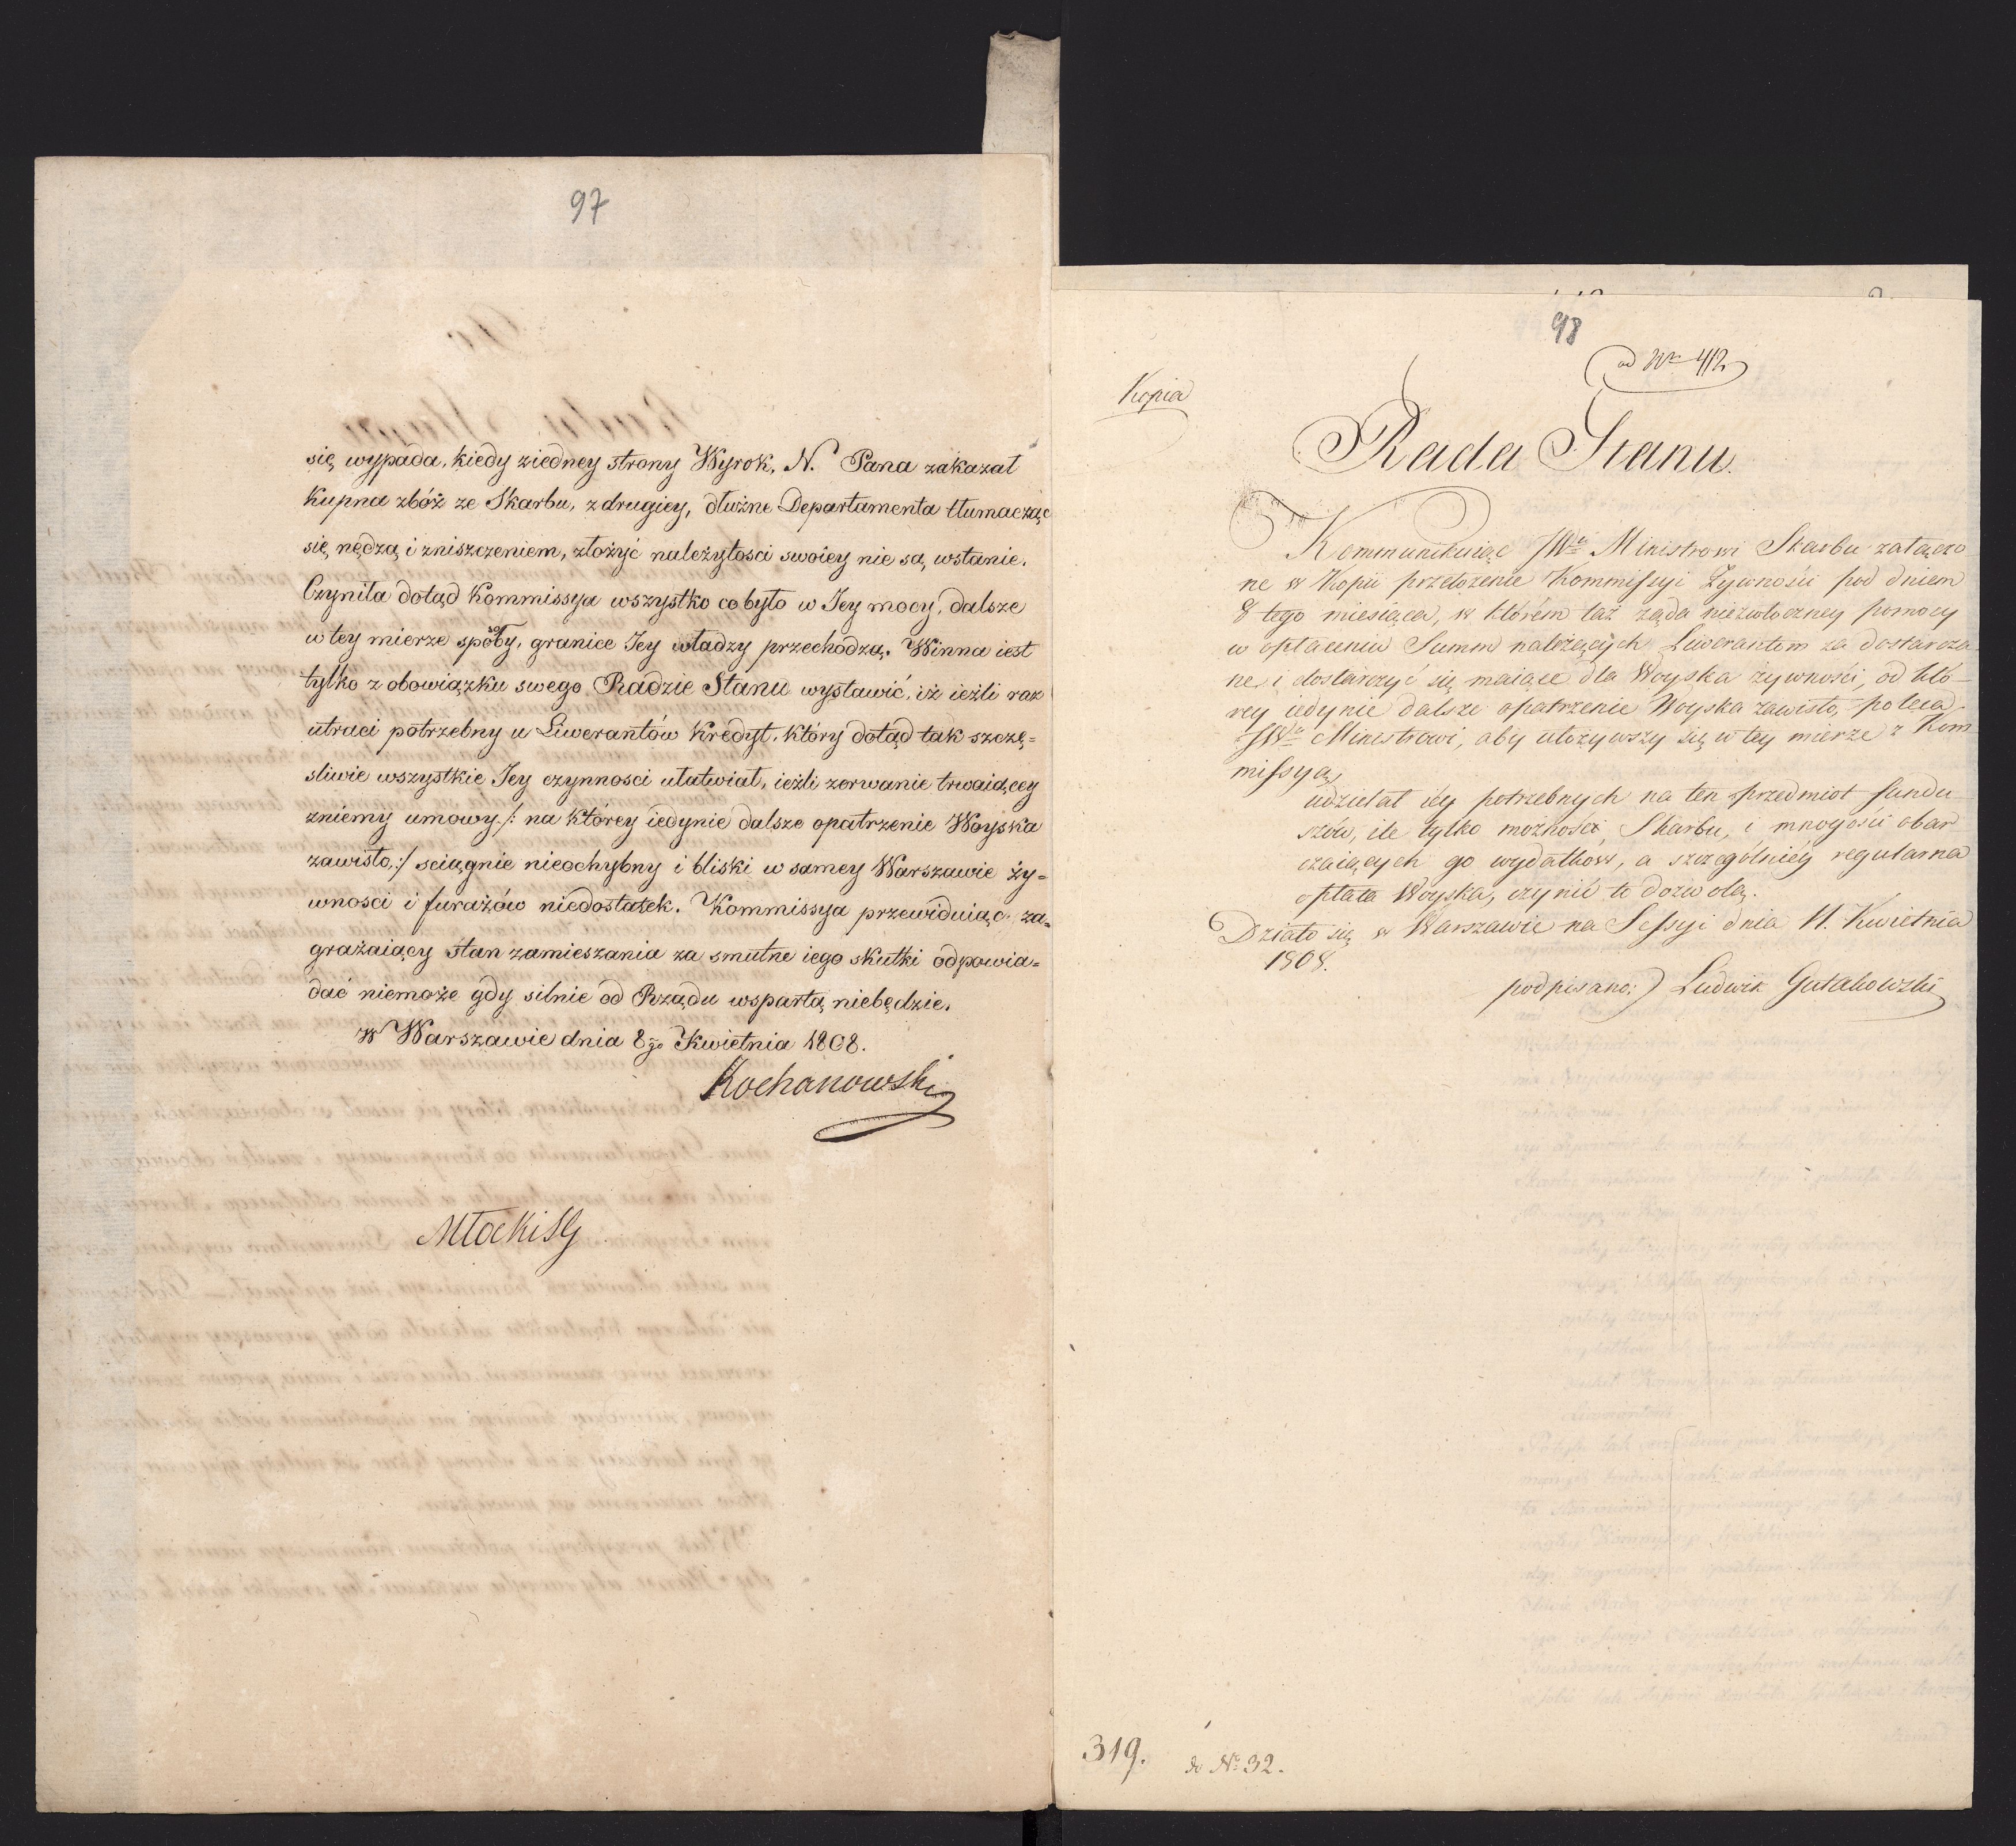 97
się wypada, kiedy ziedney strony Wyrok, N. Pana zakazał
kupna zbóż ze Skarbu, z drugiey, dłużne Departamenta tłumacząc
się nędzą i zniszczeniem, złożyć należytosci swoiey nie są wstanie.
Czyniła dotąd Kommissya wszystko co było w Jey mocy, dalsze
w tey mierze sposoby, granice Jey władzy przechodzą. Winna iest
tylko z obowiązku swego Radzie Stanu wystawić, iż ieżli raz
utraci potrzebny u Liwerantów kredyt, który dotąd tak szczę=
sliwie wszystkie Jey czynnosci ułatwiał, ieżli zerwanie trwaiącey
zniémy umowy /: na którey iedynie dalsze opatrzenie Woyska
zawisło, :/ sciągnie nieochybny i bliski w samey Warszawie ży=
wnosci i furażów niedostatek. Kommissya przewiduiąc, za=
grażaiący stan zamieszania za smutne iego skutki odpowia=
dać niemoże gdy silnie od Rządu wspartą niebędzie.
W Warszawie dnia 8go Kwietnia 1808.
Kochanowski
Młocki SG
98
ad Nr 412
Kopia
Rada Stanu.
Kommunikuiąc JWu Ministrowi Skarbu załączo
ne w Kopii przełożenie Kommissyi Żywności pod dniem
8 tego miesiąca, w którém taż żąda niezwłoczney pomocy
w opłaceniu Summ należących Liwerantom za dostarcza
ne i dostarczyć się maiące dla Woyska żywności, od któ-
rey iedynie dalsze opatrzenie Woyska zawisło, poleca
JWu Ministrowi, aby ułożywszy się w tey mierze z Kom
missyą,
udzielał iey potrzebnych na ten przedmiot fundu
szów, ile tylko możność Skarbu, i mnogość obar
czaiących go wydatków, a szczególniéy regularna
opłata Woyska, czynić to dozwolą.
Działo się w Warszawie na Sessyi dnia 11. Kwietnia
1808.
podpisano:) Ludwik Gutakowski
319.
do No 32.